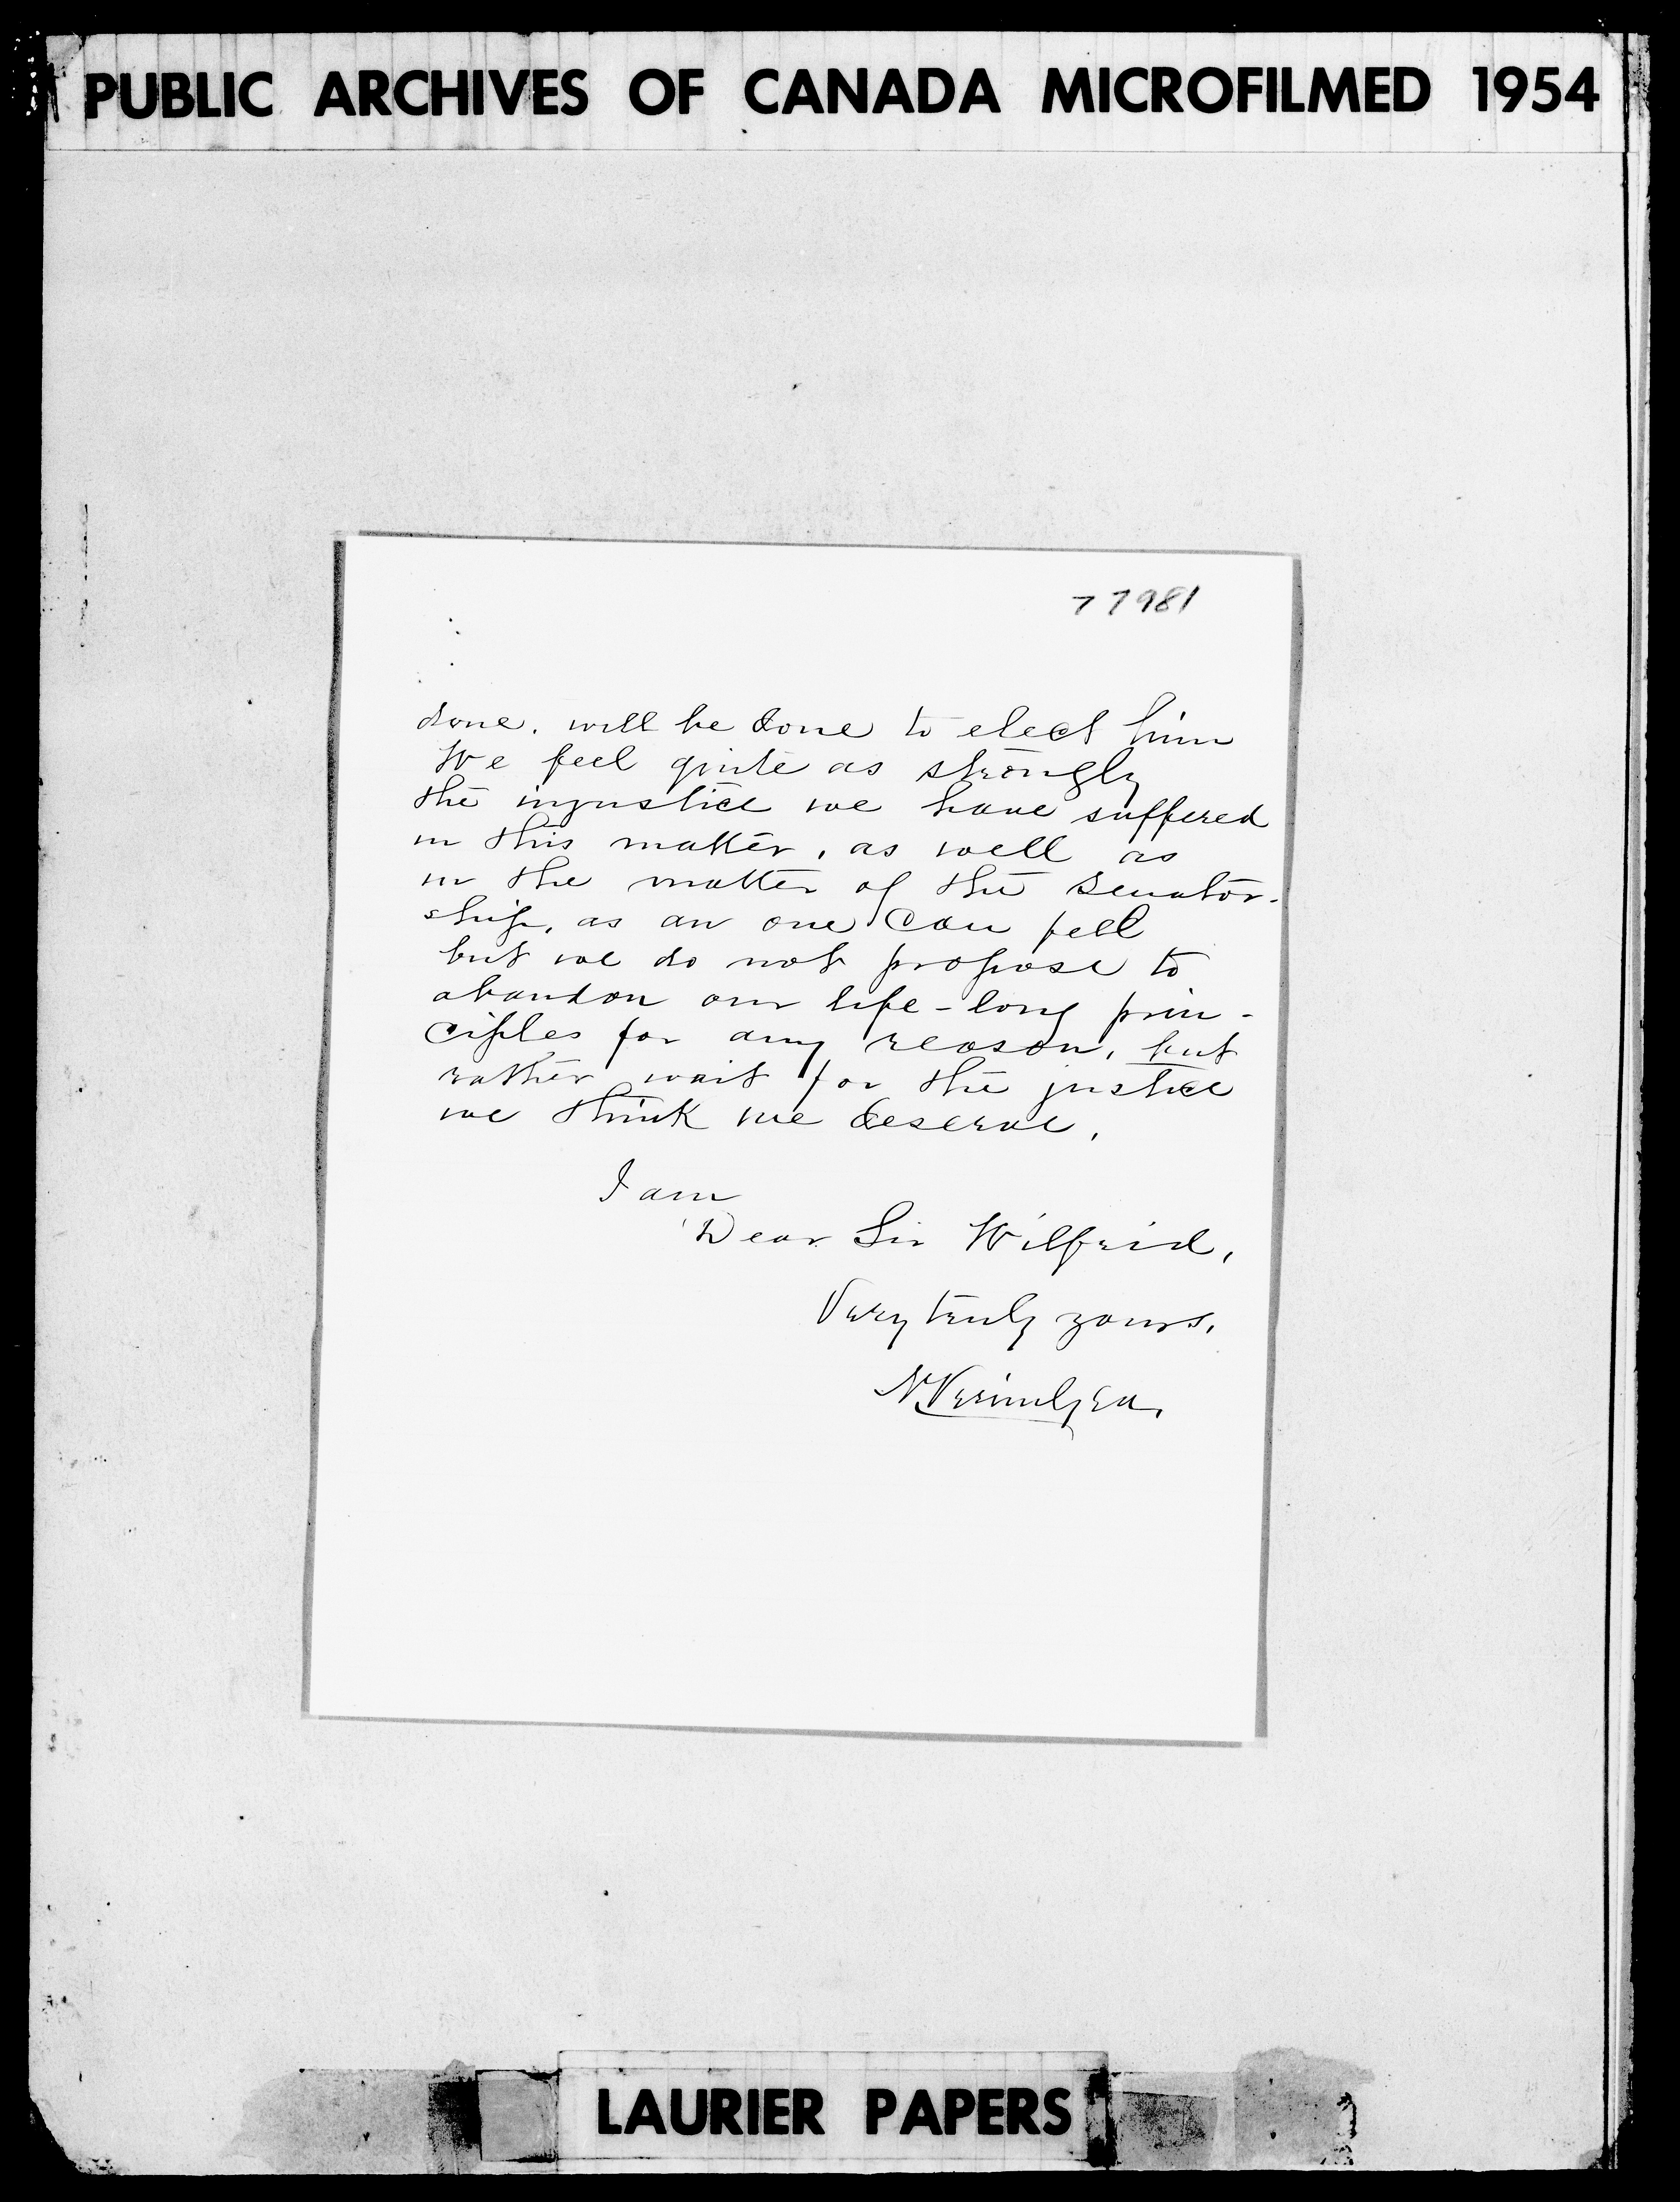 PUBLIC ARCHIVES OF CANADA MICROFILMED 1954
77981
done. will be done to elect him
We feel quite as strongly
the injustice we have suffered
in this matter, as well as
in the matter of the senator-
ship, as an one can feel
but we do not propose to
abandon our life-long prin-
ciples for any reason, but
rather wait for the justice
we think we deserve.
I am
Dear Sir Wilfrid,
Very truly yours,
LAURIER PAPERS